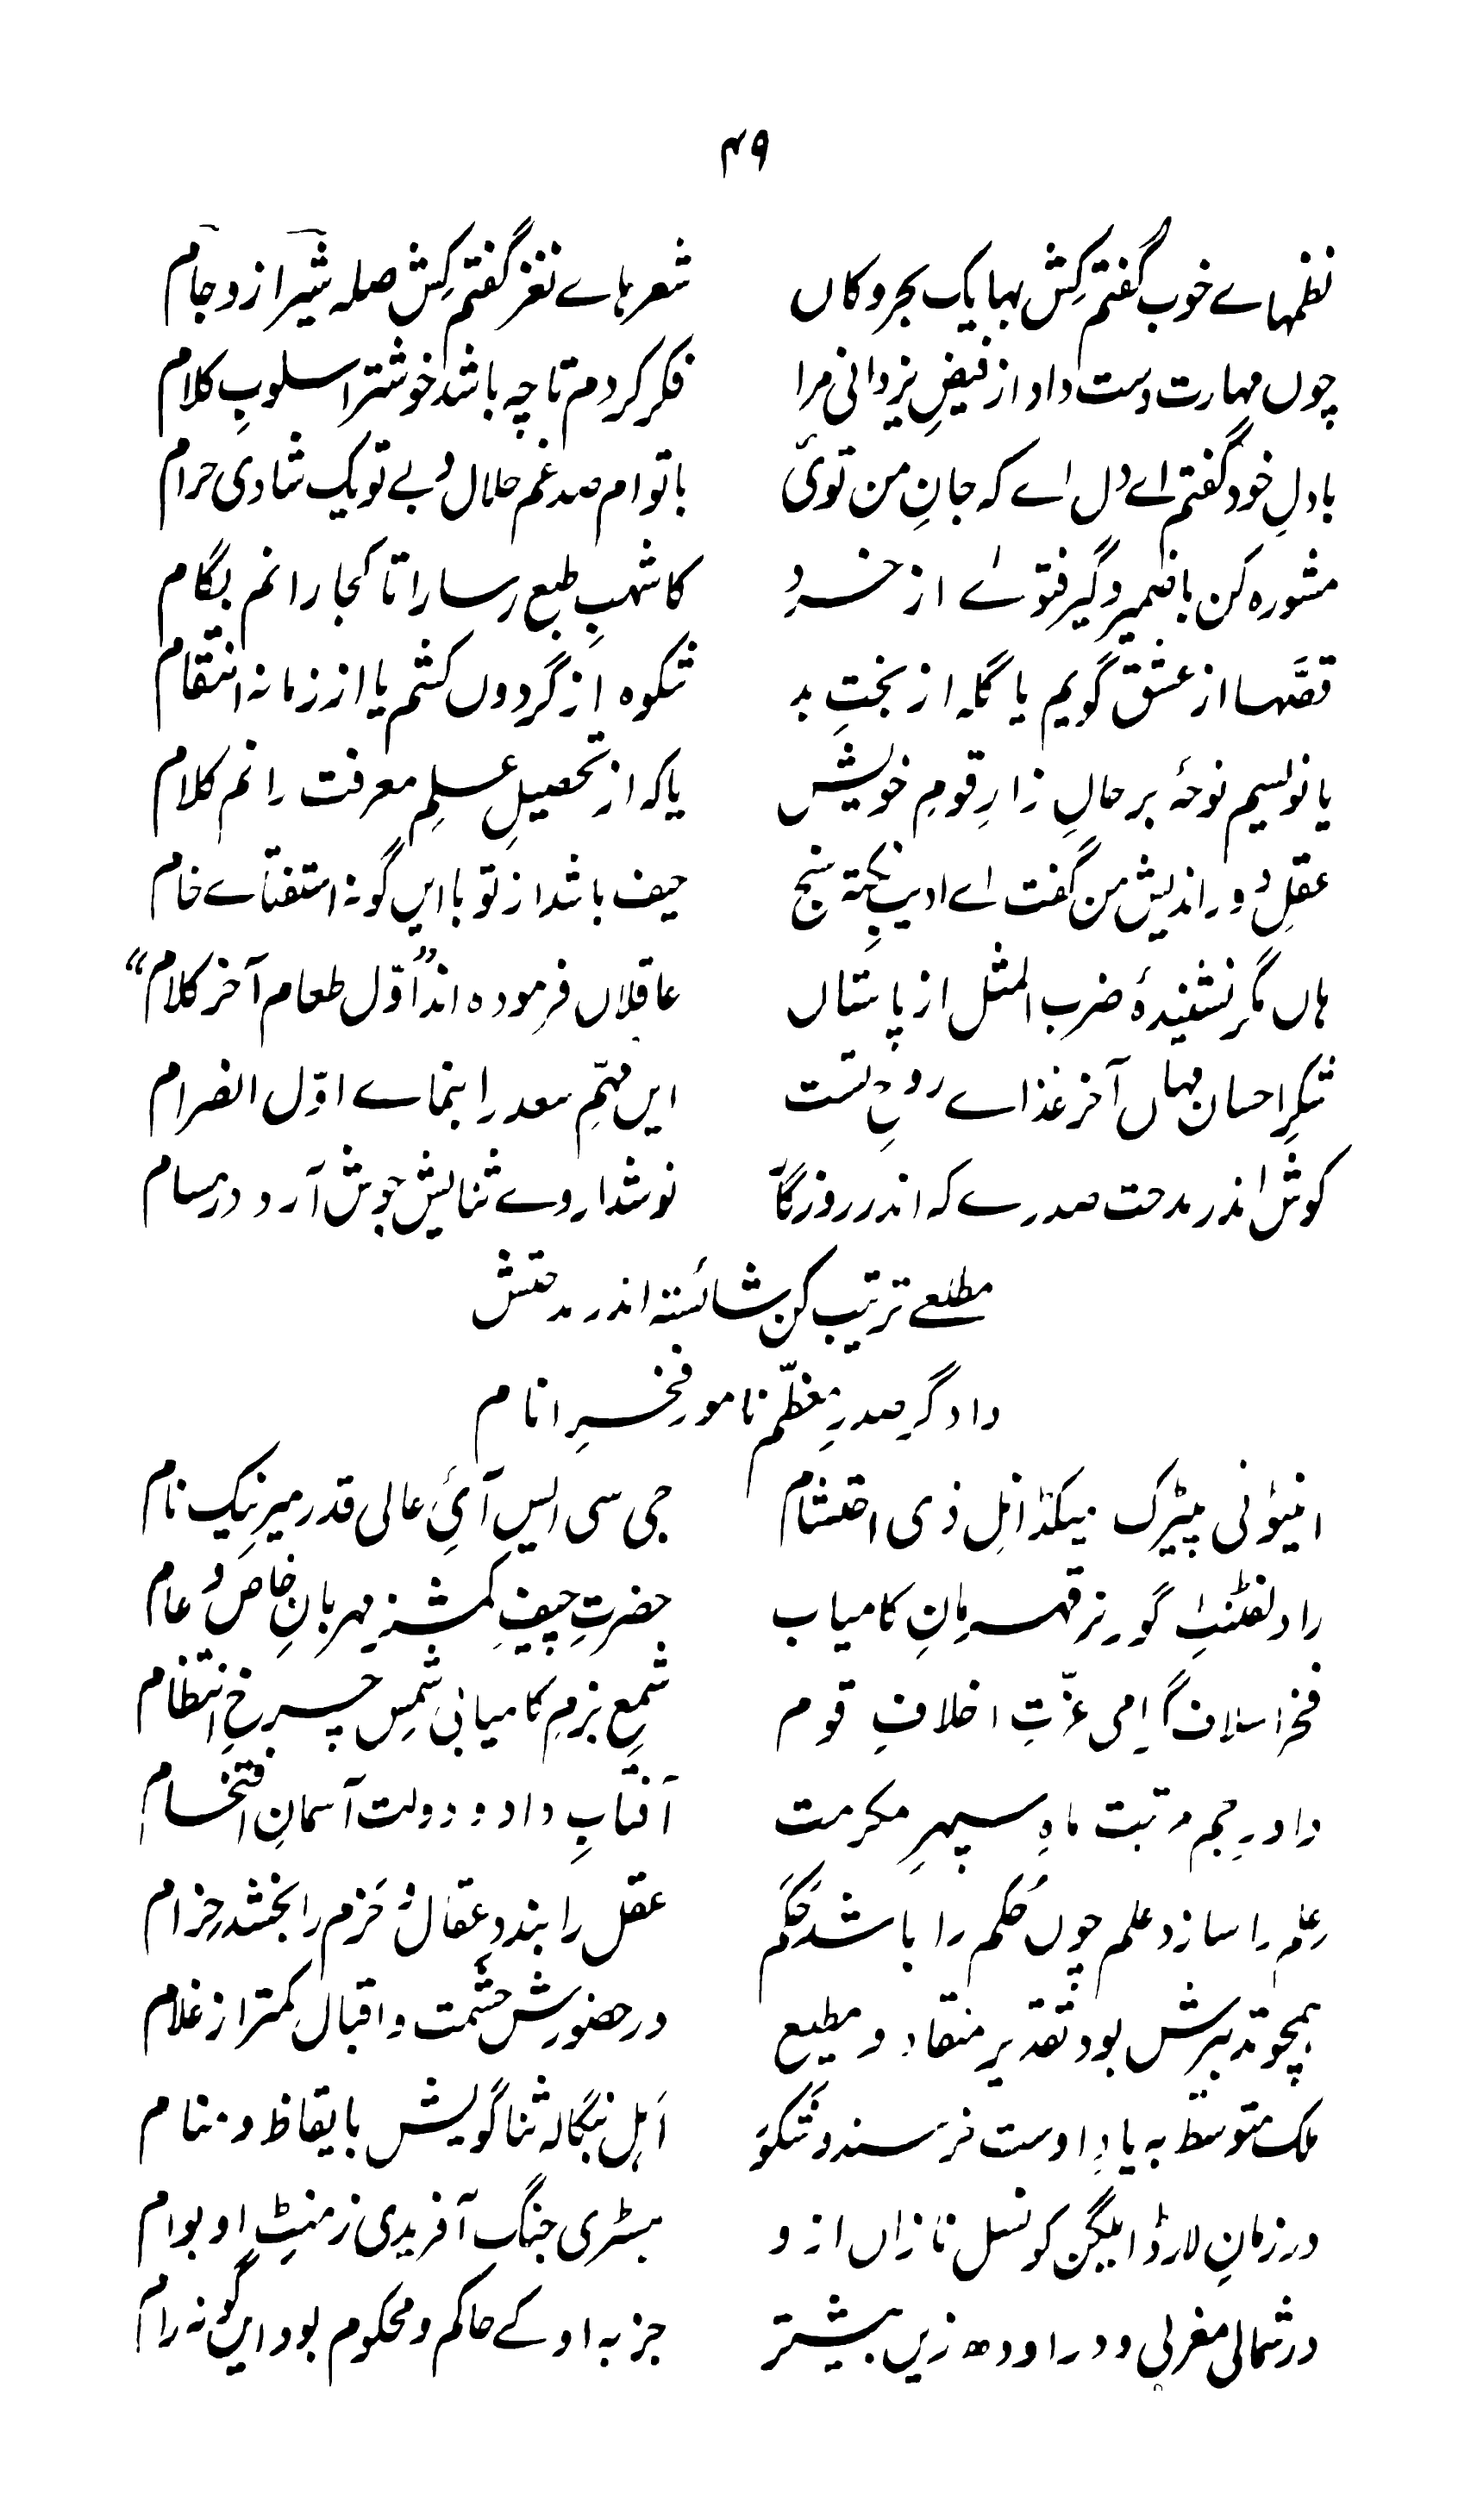 ۴۹
نظمہاے خوب گفتم کِش بہا یک بحر و کاں شعر ہاے نغز گفتم کِش صلہ شیراز و جام
چوں مہارت دست داد از فیضِ یزدانی مرا فکر کردم تا چہ باشد خوشتر اسلوبِ کلام
با دلِ خود گفتم اے دل اے کہ جانِ من توئی با توام صد غم حلال و بے تو یک شادی حرام
مشورہ کن با ضمیر و گیر فتوے از خرد کاشہبِ طبعِ رسا را تا کجا رانم لگام
قصّہا از عشق گویم یا گلہ از بختِ بد شکوہ از گردوں کشم یا از زمانہ انتقام
یا نویسم نوحۂ بر حالِ زارِ قومِ خویش یا کہ از تحصیلِ علمِ معرفت رانم کلام
عقلِ دور اندیش من گفت اے ادیبِ پختہ سنج حیف باشد از تو با ایں گونہ استفتاے خام
ہاں مگر نشنیدۂ ضرب المثل از پاستاں عاقلاں فرمودہ اند "اوّل طعام آخر کلام"
شکرِ احساں نہاں آخر غذاے روحِ تست ایں مہمِّ سعد را بنماے اوّل انصرام
کوش اندر مدحت صدرے کہ اندر روزگار نوشداروے ثنایش جوش آرد در مسام
مطلعے ترتیب کن شائستہ اندر مدحتش
دادگر صدرِ معظّم نامور فخرِ انام
انیٹونی پیٹرک میکڈانلِ ذی احتشام جی سی ایس آئیِ عالی قدر میرِ نیک نام
راد لفٹنٹ گورنر قہرمانِ کامیاب حضرتِ چیف کمشنر مہربانِ خاص و عام
فخرِ اسلافِ گرامی عزّتِ اخلافِ قوم شمعِ بزمِ کامیابی شمسِ چرخِ انتظام
داورِ جم مرتبت ماہِ سپہرِ مکرمت آفتابِ داد و دولت آسمانِ افتخام
علم را سازد علم چوں حُکم را باشد حَکَم عقل را بندد عقال و حَزم را بخشد حزام
ہمچو تدبیرش بود تقدیر منقاد و مطیع در حضورش حشمت و اقبال کمتر از غلام
ملک متوسّط بہ یادِ اوست خرسند و شکور اہلِ بنگالہ ثنا گویش بایقاظ و منام
در زمانِ لارڈ ایلگن کونسل نازاں از و ہسٹری جنگ آفریدی ز منٹِ او بوام
در شمالی مغربی و در اودھ زیں بیشتر جز بہ او کے حاکم و محکوم بود ایں گونہ رام